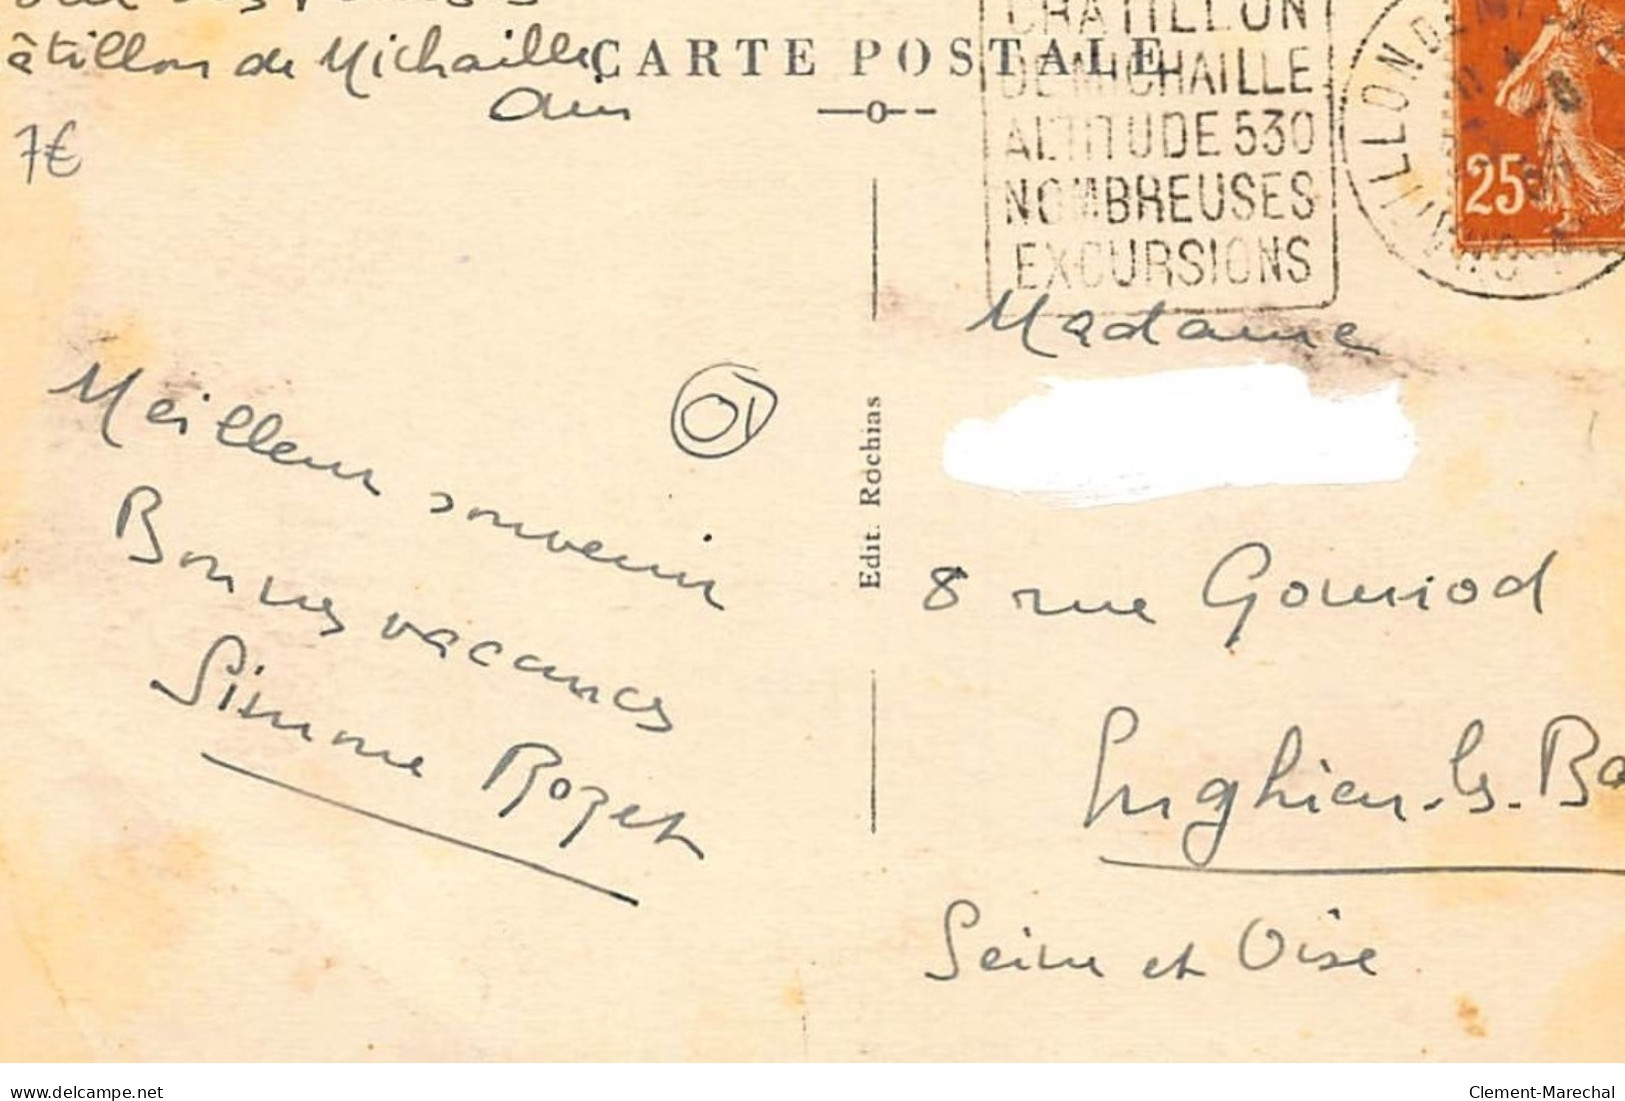 âtillon de Michaille
Ain
7€
CARTE POSTALE
CHATILLON
DE MICHAILLE
ALTITUDE 530
NOMBREUSES
EXCURSIONS
25
Meilleur souvenir
Bonnes vacances
Simone Rozet
Edit. Rochias
Madame
8 rue Gounod
Enghien-les-Ba
Seine et Oise
delcampe.net
Clement-Marechal